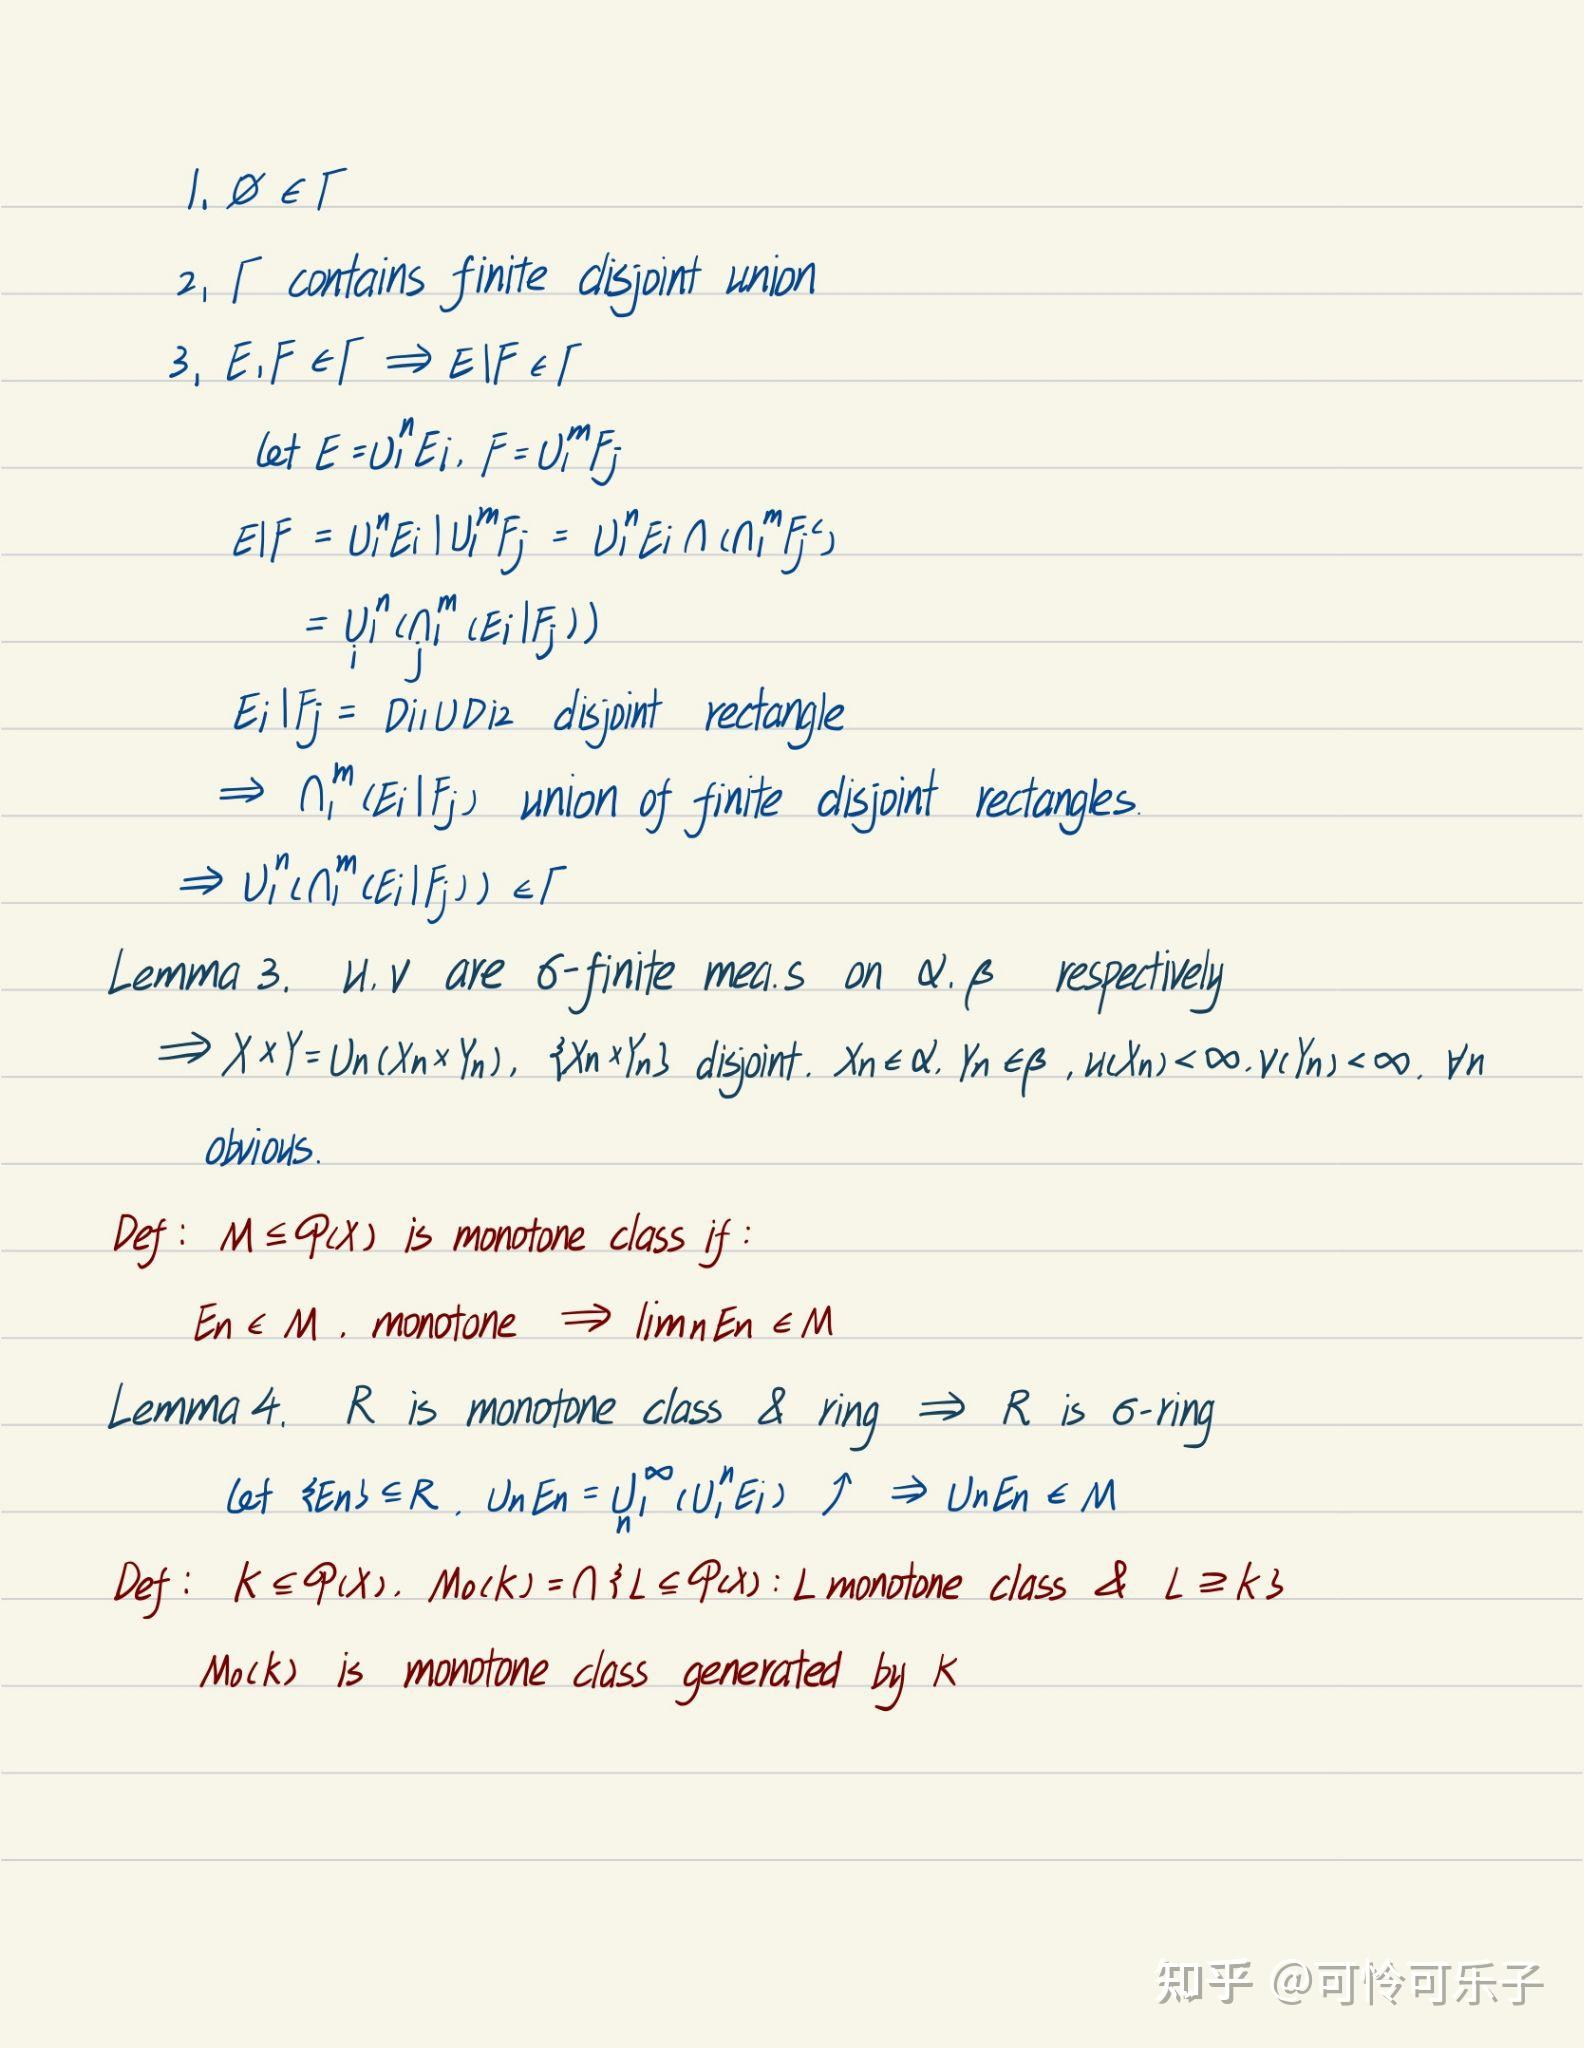 1. ∅ ∈ Γ
2. Γ contains finite disjoint union
3. E, F ∈ Γ ⇒ E\F ∈ Γ
let E = ∪₁ⁿ Ei, F = ∪₁ᵐ Fj
E\F = ∪₁ⁿ Ei \ ∪₁ᵐ Fj = ∪₁ⁿ Ei ∩ (∩₁ᵐ Fjᶜ)
= ∪₁ⁿ (∩₁ᵐ (Ei \ Fj))
i j
Ei \ Fj = Di1 ∪ Di2 disjoint rectangle
⇒ ∩₁ᵐ (Ei \ Fj) union of finite disjoint rectangles.
⇒ ∪₁ⁿ (∩₁ᵐ (Ei \ Fj)) ∈ Γ
Lemma 3. u, v are σ-finite mea.s on α, β respectively
⇒ X × Y = ∪n (Xn × Yn), {Xn × Yn} disjoint. Xn ∈ α, Yn ∈ β, u(Xn) < ∞, v(Yn) < ∞, ∀n
obvious.
Def: M ⊆ P(X) is monotone class if:
En ∈ M, monotone ⇒ limn En ∈ M
Lemma 4. R is monotone class & ring ⇒ R is σ-ring
let {En} ⊆ R, ∪n En = ∪₁^∞ (∪₁ⁿ Ei) ↑ ⇒ ∪n En ∈ M
n
Def: K ⊆ P(X). Mo(K) = ∩ {L ⊆ P(X) : L monotone class & L ⊇ K}
Mo(K) is monotone class generated by K
知乎 @可怜可乐子